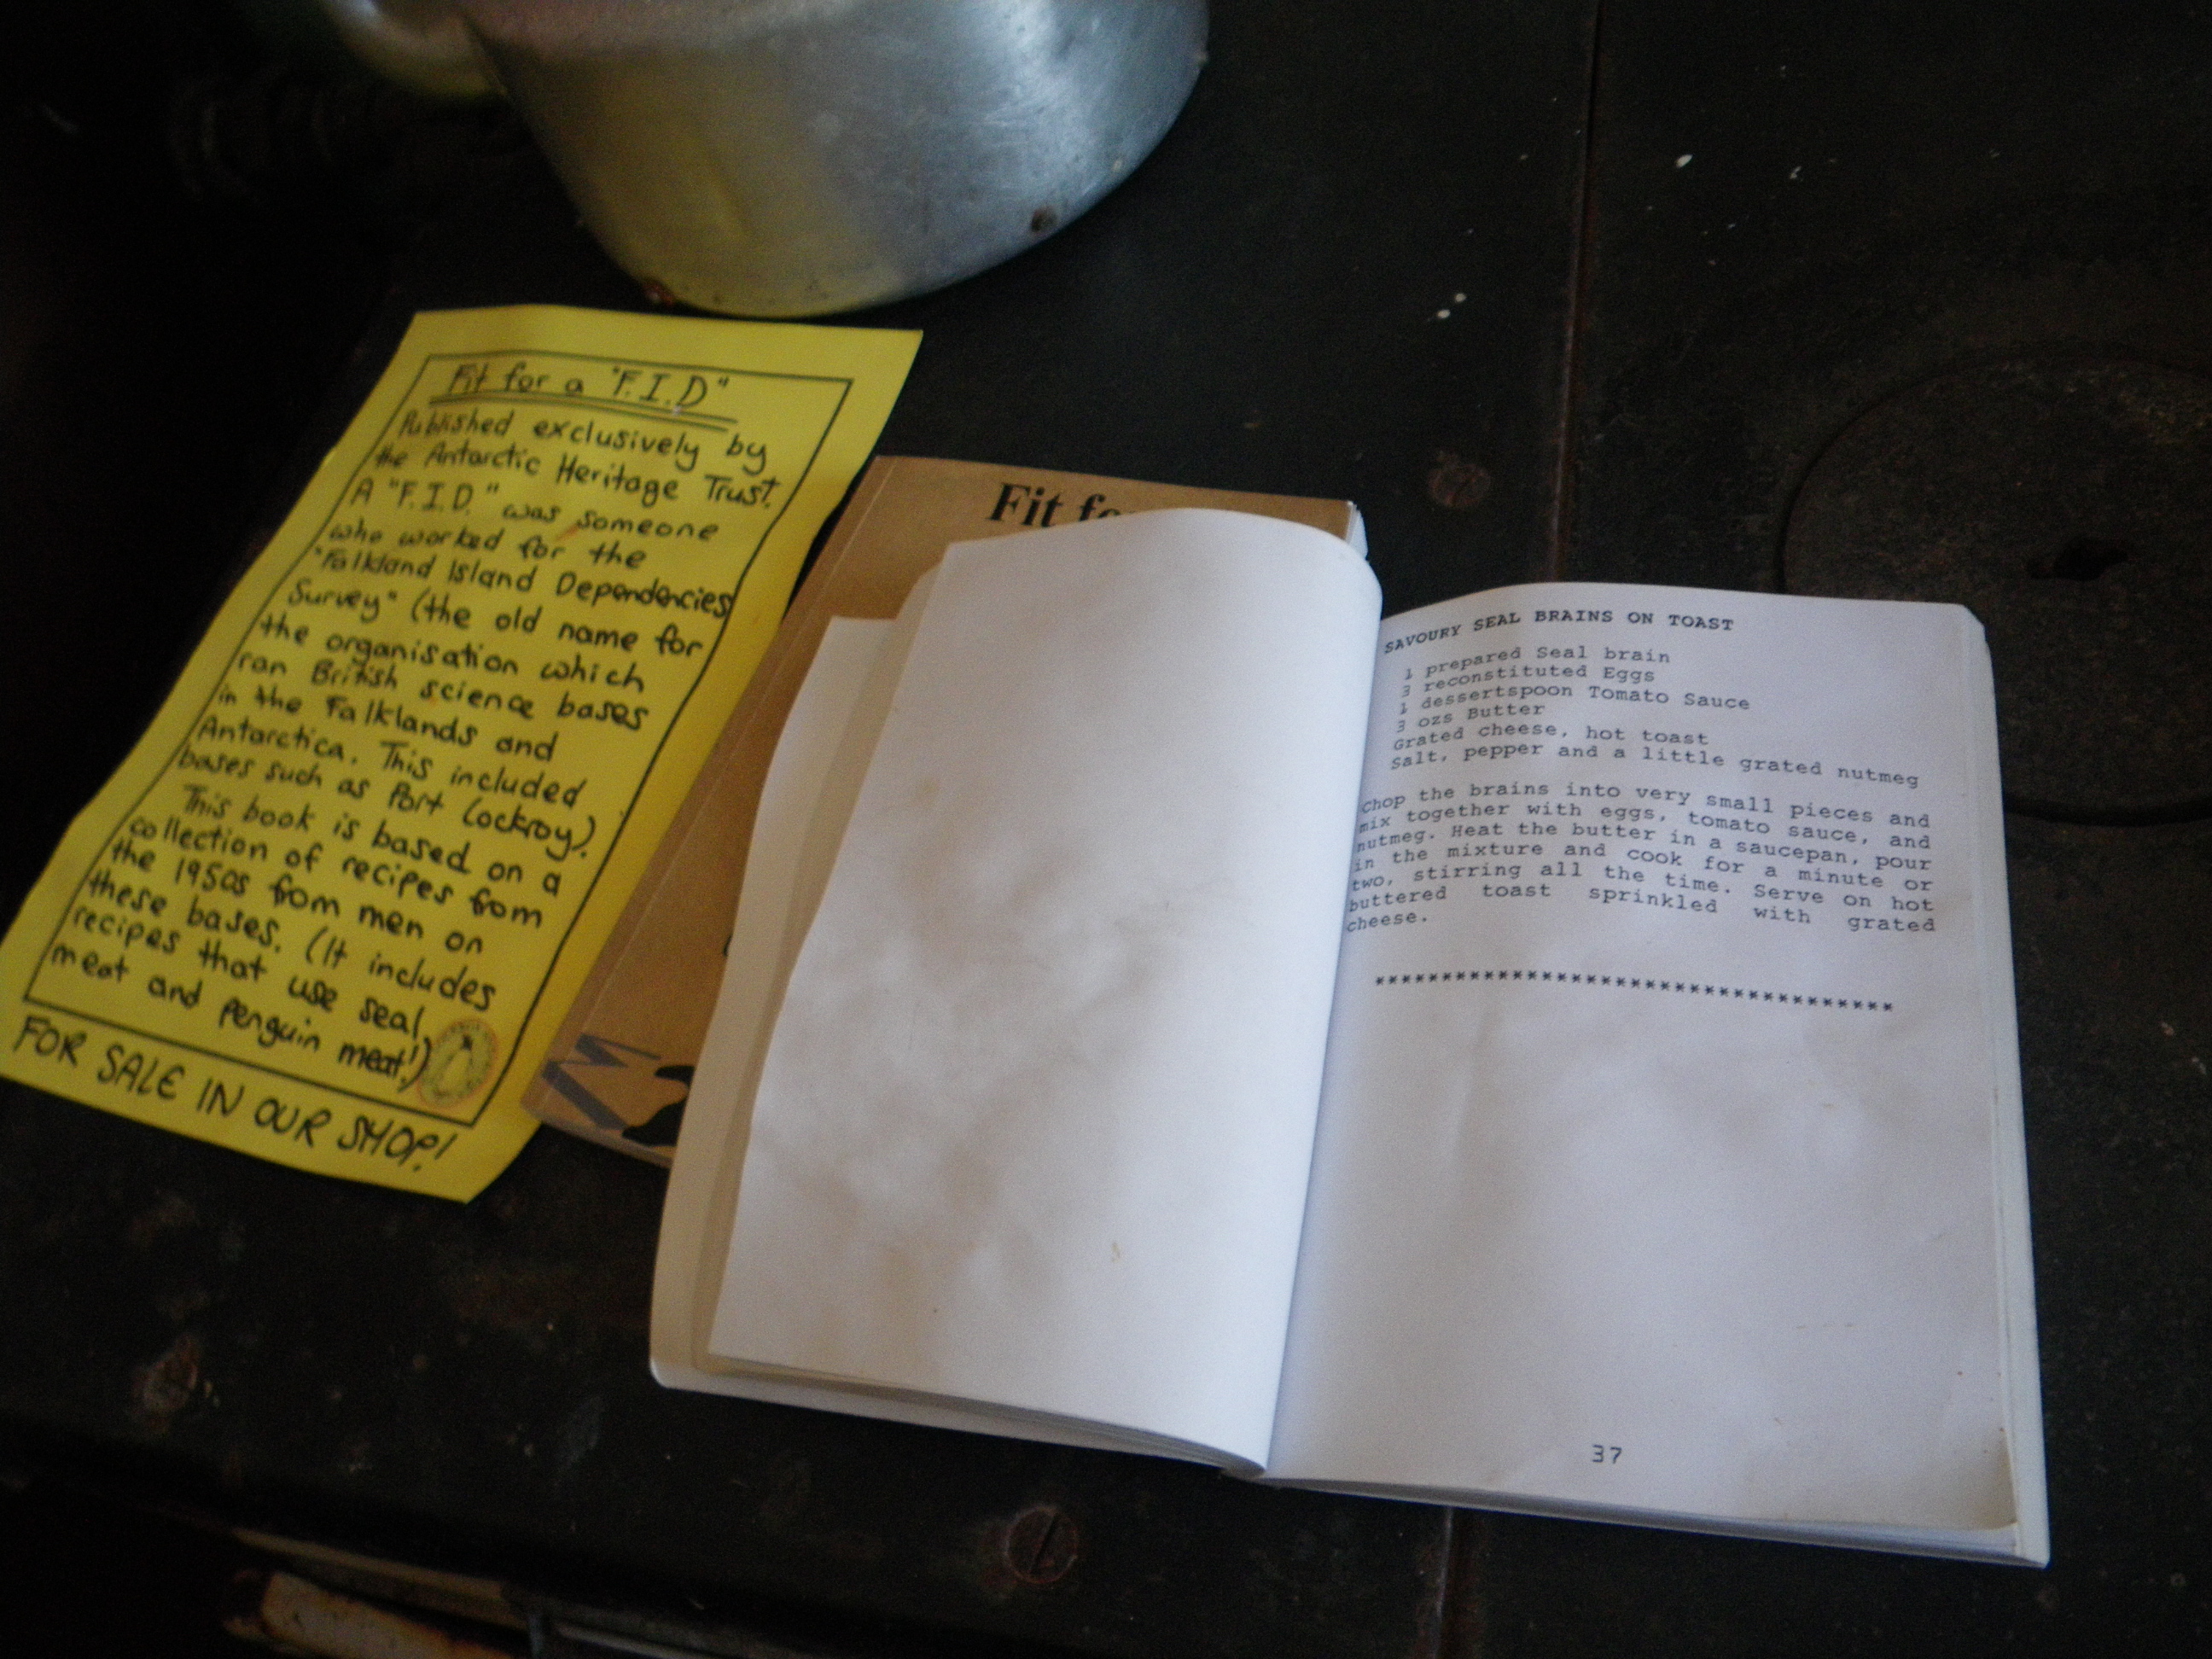 Fit for a "F.I.D"
Published exclusively by
the Antarctic Heritage Trust.
A "F.I.D." was someone
who worked for the
"Falkland Island Dependencies
Survey" (the old name for
the organisation which
ran British science bases
in the Falklands and
Antarctica. This included
bases such as Port Lockroy).
This book is based on a
collection of recipes from
the 1950s from men on
these bases. (It includes
recipes that use seal
meat and penguin meat!)
FOR SALE IN OUR SHOP!
Fit
SAVOURY SEAL BRAINS ON TOAST
1 prepared Seal brain
3 reconstituted Eggs
1 dessertspoon Tomato Sauce
3 ozs Butter
Grated cheese, hot toast
Salt, pepper and a little grated nutmeg
Chop the brains into very small pieces and
mix together with eggs, tomato sauce, and
nutmeg. Heat the butter in a saucepan, pour
in the mixture and cook for a minute or
two, stirring all the time. Serve on hot
buttered toast sprinkled with grated
cheese.
************************************
37